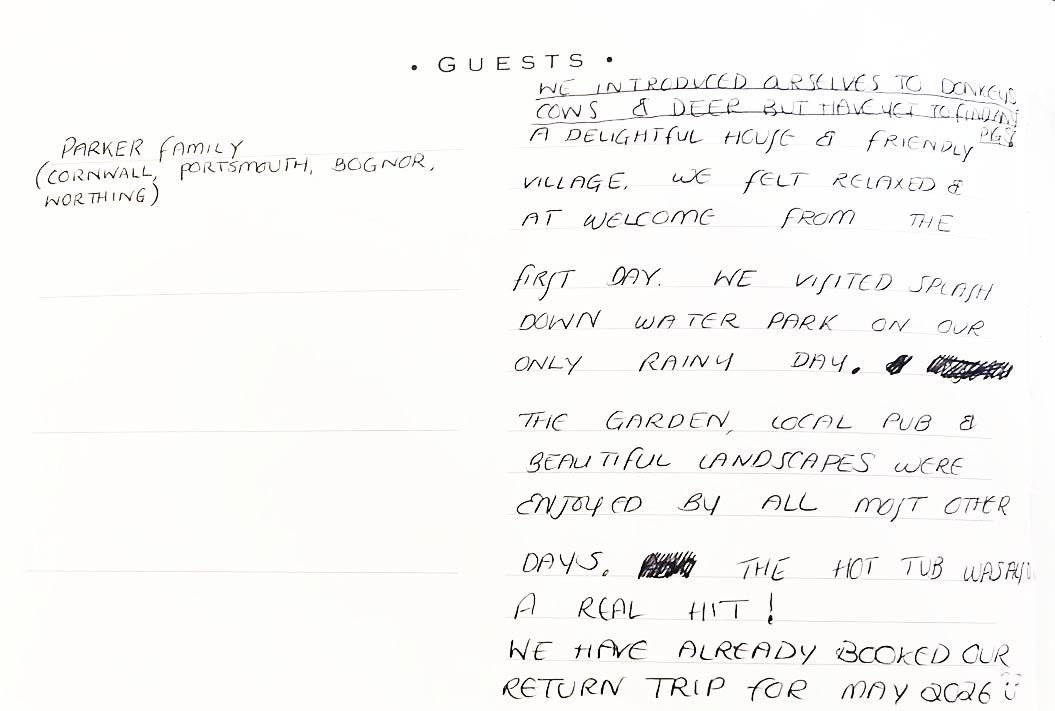 • GUESTS •
WE INTRODUCED OURSELVES TO DONKEYS
COWS & DEER BUT HAVE YET TO FIND
PARKER FAMILY
(CORNWALL, PORTSMOUTH, BOGNOR,
WORTHING)
A DELIGHTFUL HOUSE & FRIENDLY
VILLAGE. WE FELT RELAXED &
AT WELCOME FROM THE
FIRST DAY. WE VISITED SPLASH
DOWN WATER PARK ON OUR
ONLY RAINY DAY.
THE GARDEN, LOCAL PUB &
BEAUTIFUL LANDSCAPES WERE
ENJOYED BY ALL MOST OTHER
DAYS. THE HOT TUB WAS
A REAL HIT!
WE HAVE ALREADY BOOKED OUR
RETURN TRIP FOR MAY 2026